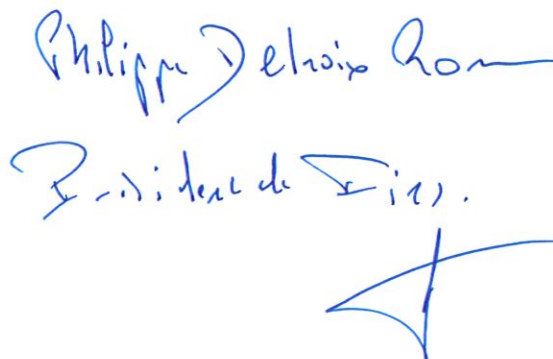 Philippe Delroix Rom
Président de